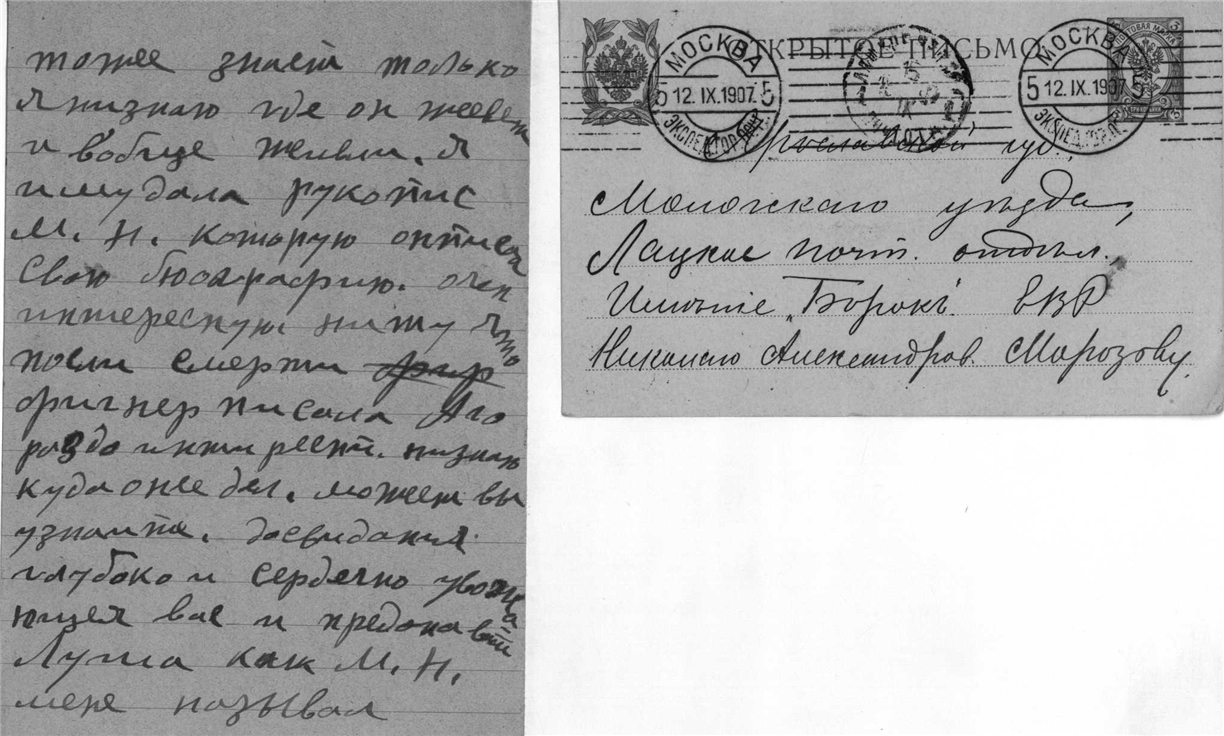 тоже знает только
я низнаю где он живет
и вобще живли. я
имудала рукопис
М. Н. которую онписал
свою биографию. очен
интереcную нижу я что
посли смерти фигр
фигнер писала Аго
раздо интирестн. низнаю
куда онее дел. можем вы
узнаити. досвидания
глубоко и сердечно уважа
ющея вас и предоная вам
Луша как М. Н.
мене называл
ОТКРЫТОЕ ПИСЬМО
МОСКВА
5 12. IX. 1907. 5
ЭКСПЕД. ГОР. ПОЧТ.
МОСКВА
5 12. IX. 1907
ЭКСПЕД. ГОР. П.
Ярославской губ.,
Мологскаго уѣзда,
Лацкое почт. отдѣл.
Имѣніе „Борокъ" ЕВР
Николаю Александров. Морозову.